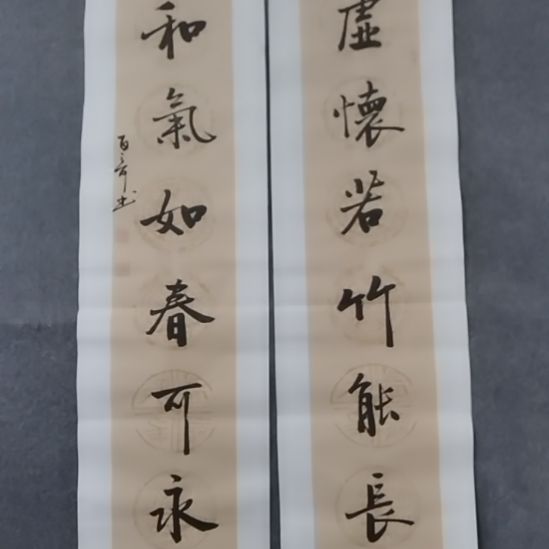 虛懷若竹能長
和氣如春可永
百奇書